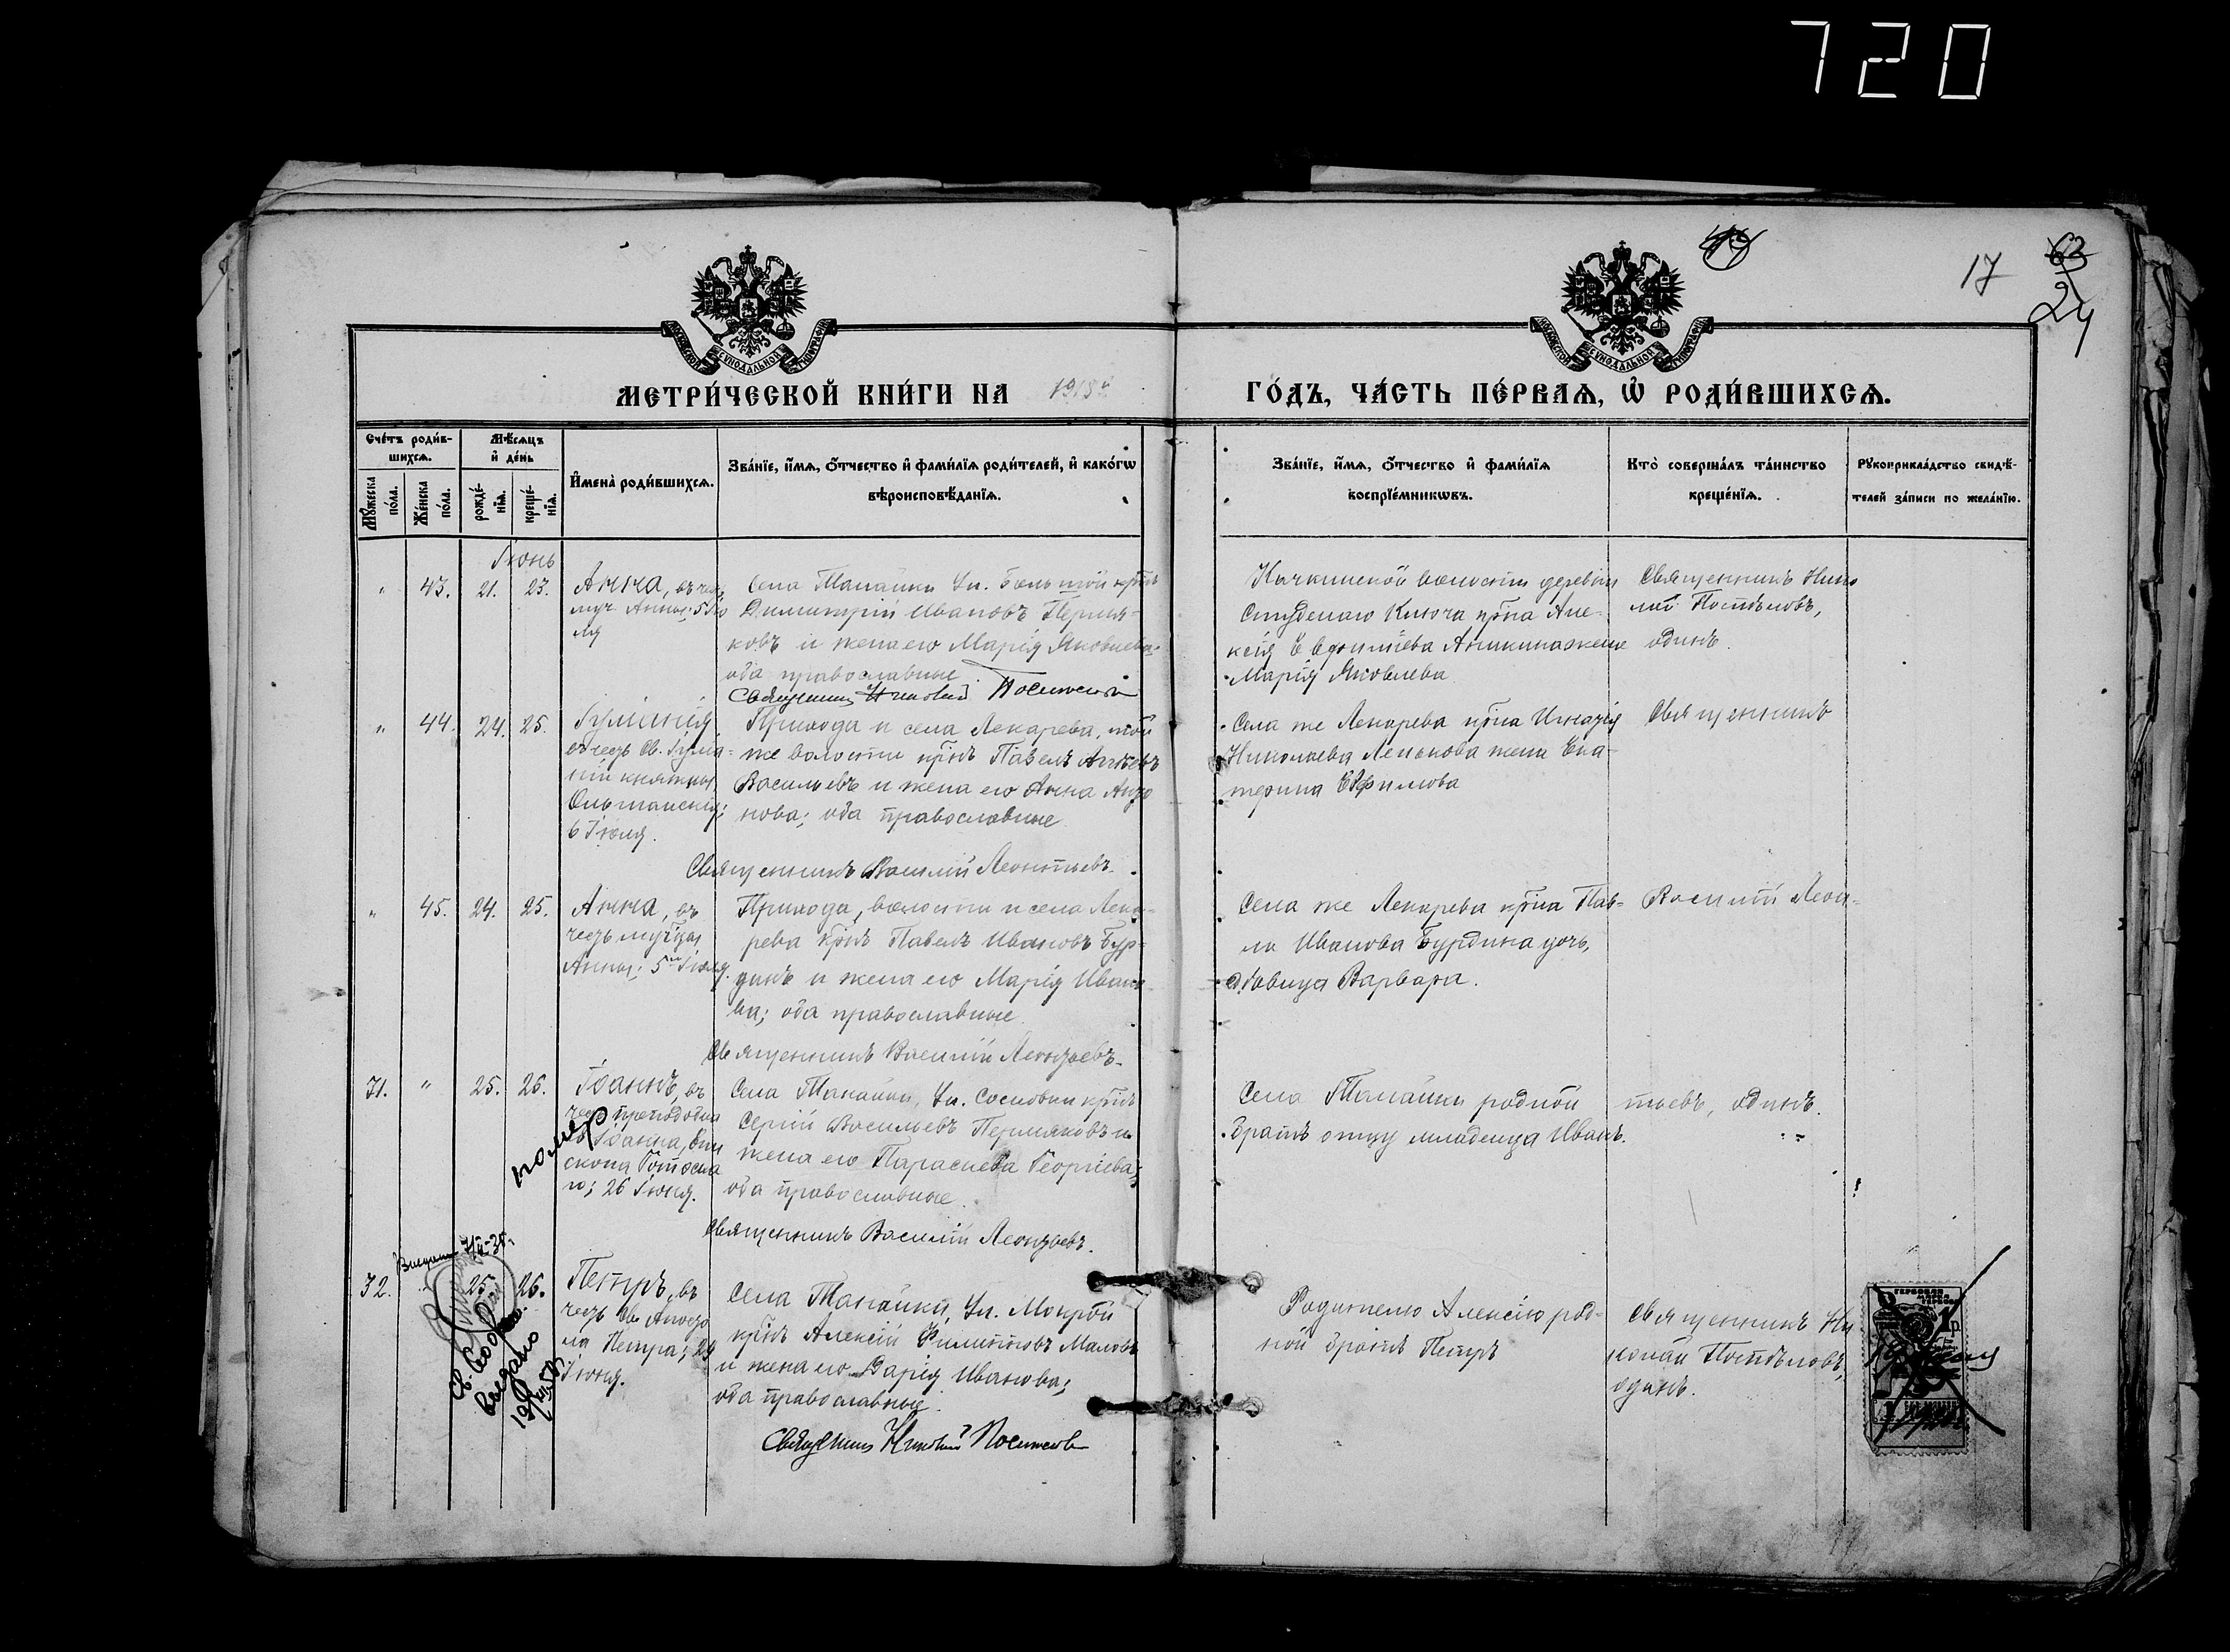 720
17
63
24
МОСКОВСКОЙ СѴНОДАЛЬНОЙ ТИПОГРАФІИ
МОСКОВСКОЙ СѴНОДАЛЬНОЙ ТИПОГРАФІИ
МЕТРИ́ЧЕСКОЙ КНИ́ГИ НА
ГО́ДЪ, ЧА́СТЬ ПЕ́РВАѦ, Ѡ҆ РОДИ́ВШИХСѦ.
Сче́тъ роди́в-
шихсѧ.
Мѣ́сѧцъ
и҆ де́нь
Мꙋ́жеска
по́ла.
Же́нска
по́ла.
рожде́-
нїѧ.
креще́-
нїѧ.
И҆мена̀ роди́вшихсѧ.
Зва́нїе, и҆́мѧ, ѻ҆́тчество и҆ фами́лїѧ роди́телей, и҆ како́гѡ
вѣроисповѣ́данїѧ.
Зва́нїе, и҆́мѧ, ѻ҆́тчество и҆ фами́лїѧ
воспрїе́мникѡвъ.
Кто̀ соверша́лъ та́инство
креще́нїѧ.
Рꙋкоприкла́дство свидѣ́-
телей за́писи по жела́нїю.
Іюнь
" 43. 21. 23.
Анна, въ чест
муч. Анны; 5 Ію
ля
Села Танайки Ул. Большой крнъ
Димитрій Ивановъ Пермя-
ковъ и жена его Марія Яковлева;
оба православные
Священникъ Николай Поспеловъ
Кичкинской волости деревни
Студенаго Ключа крна Але-
ксія Евфиміева Аникина жена
Марія Яковлева
Священникъ Нико
лай Поспѣловъ,
одинъ.
" 44. 24. 25.
Іуліанія
въ честь Св. Іуліа-
ніи княжны
Ольшанскія;
6 Іюля.
Прихода и села Лекарева, той
же волости крнъ Павелъ
Васильевъ и жена его Анна
нова; оба православные
Священникъ Василій Леонтьевъ.
Села же Лекарева крна Игнатія
Николаева Ленькова жена Ека-
терина Ефимова
Священникъ
" 45. 24. 25.
Анна, въ
честь мучцы
Анны; 5го Іюля.
Прихода, волости и села Лека-
рева крнъ Павелъ Ивановъ Бур-
динъ и жена его Марія Ивано-
ва; оба православные
Священникъ Василій Леонтьевъ.
Села же Лекарева крна Пав-
ла Иванова Бурдина дочь,
дѣвица Варвара.
Василій Леон-
31. " 25. 26.
Іоаннъ, въ
честь преподобна
Іоанна, епи
скопа Готоска
го; 26 Іюня.
помер
Села Танайки, Ул. Сосновки крнъ
Сергій Васильевъ Пермяковъ и
жена его Параскева Георгіева;
оба православные.
Священникъ Василій Леонтьевъ.
Села Танайки родной
братъ отцу младенца Иванъ.
тьевъ, одинъ.
32. 25. 26.
Петръ, въ
честь Св. Апосто
ла Петра; 29
Іюня.
выдано
Села Танайки, Ул. Мокрой
крнъ Алексій Филипповъ Маловъ
и жена его Дарія Иванова;
оба православные.
Священникъ Николай Поспеловъ
Родителю Алексію род-
ной братъ Петръ
Священникъ Ни
колай Поспѣловъ,
одинъ.